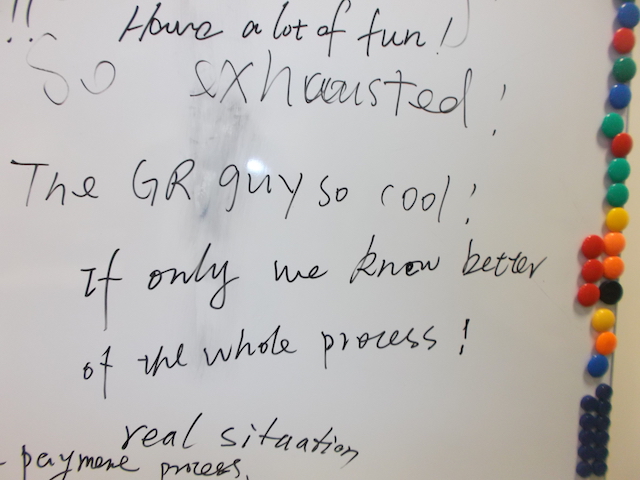 !! Have a lot of fun!
So exhausted!
The GR guy so cool!
If only we know better
of the whole process!
real situation
- payment process,